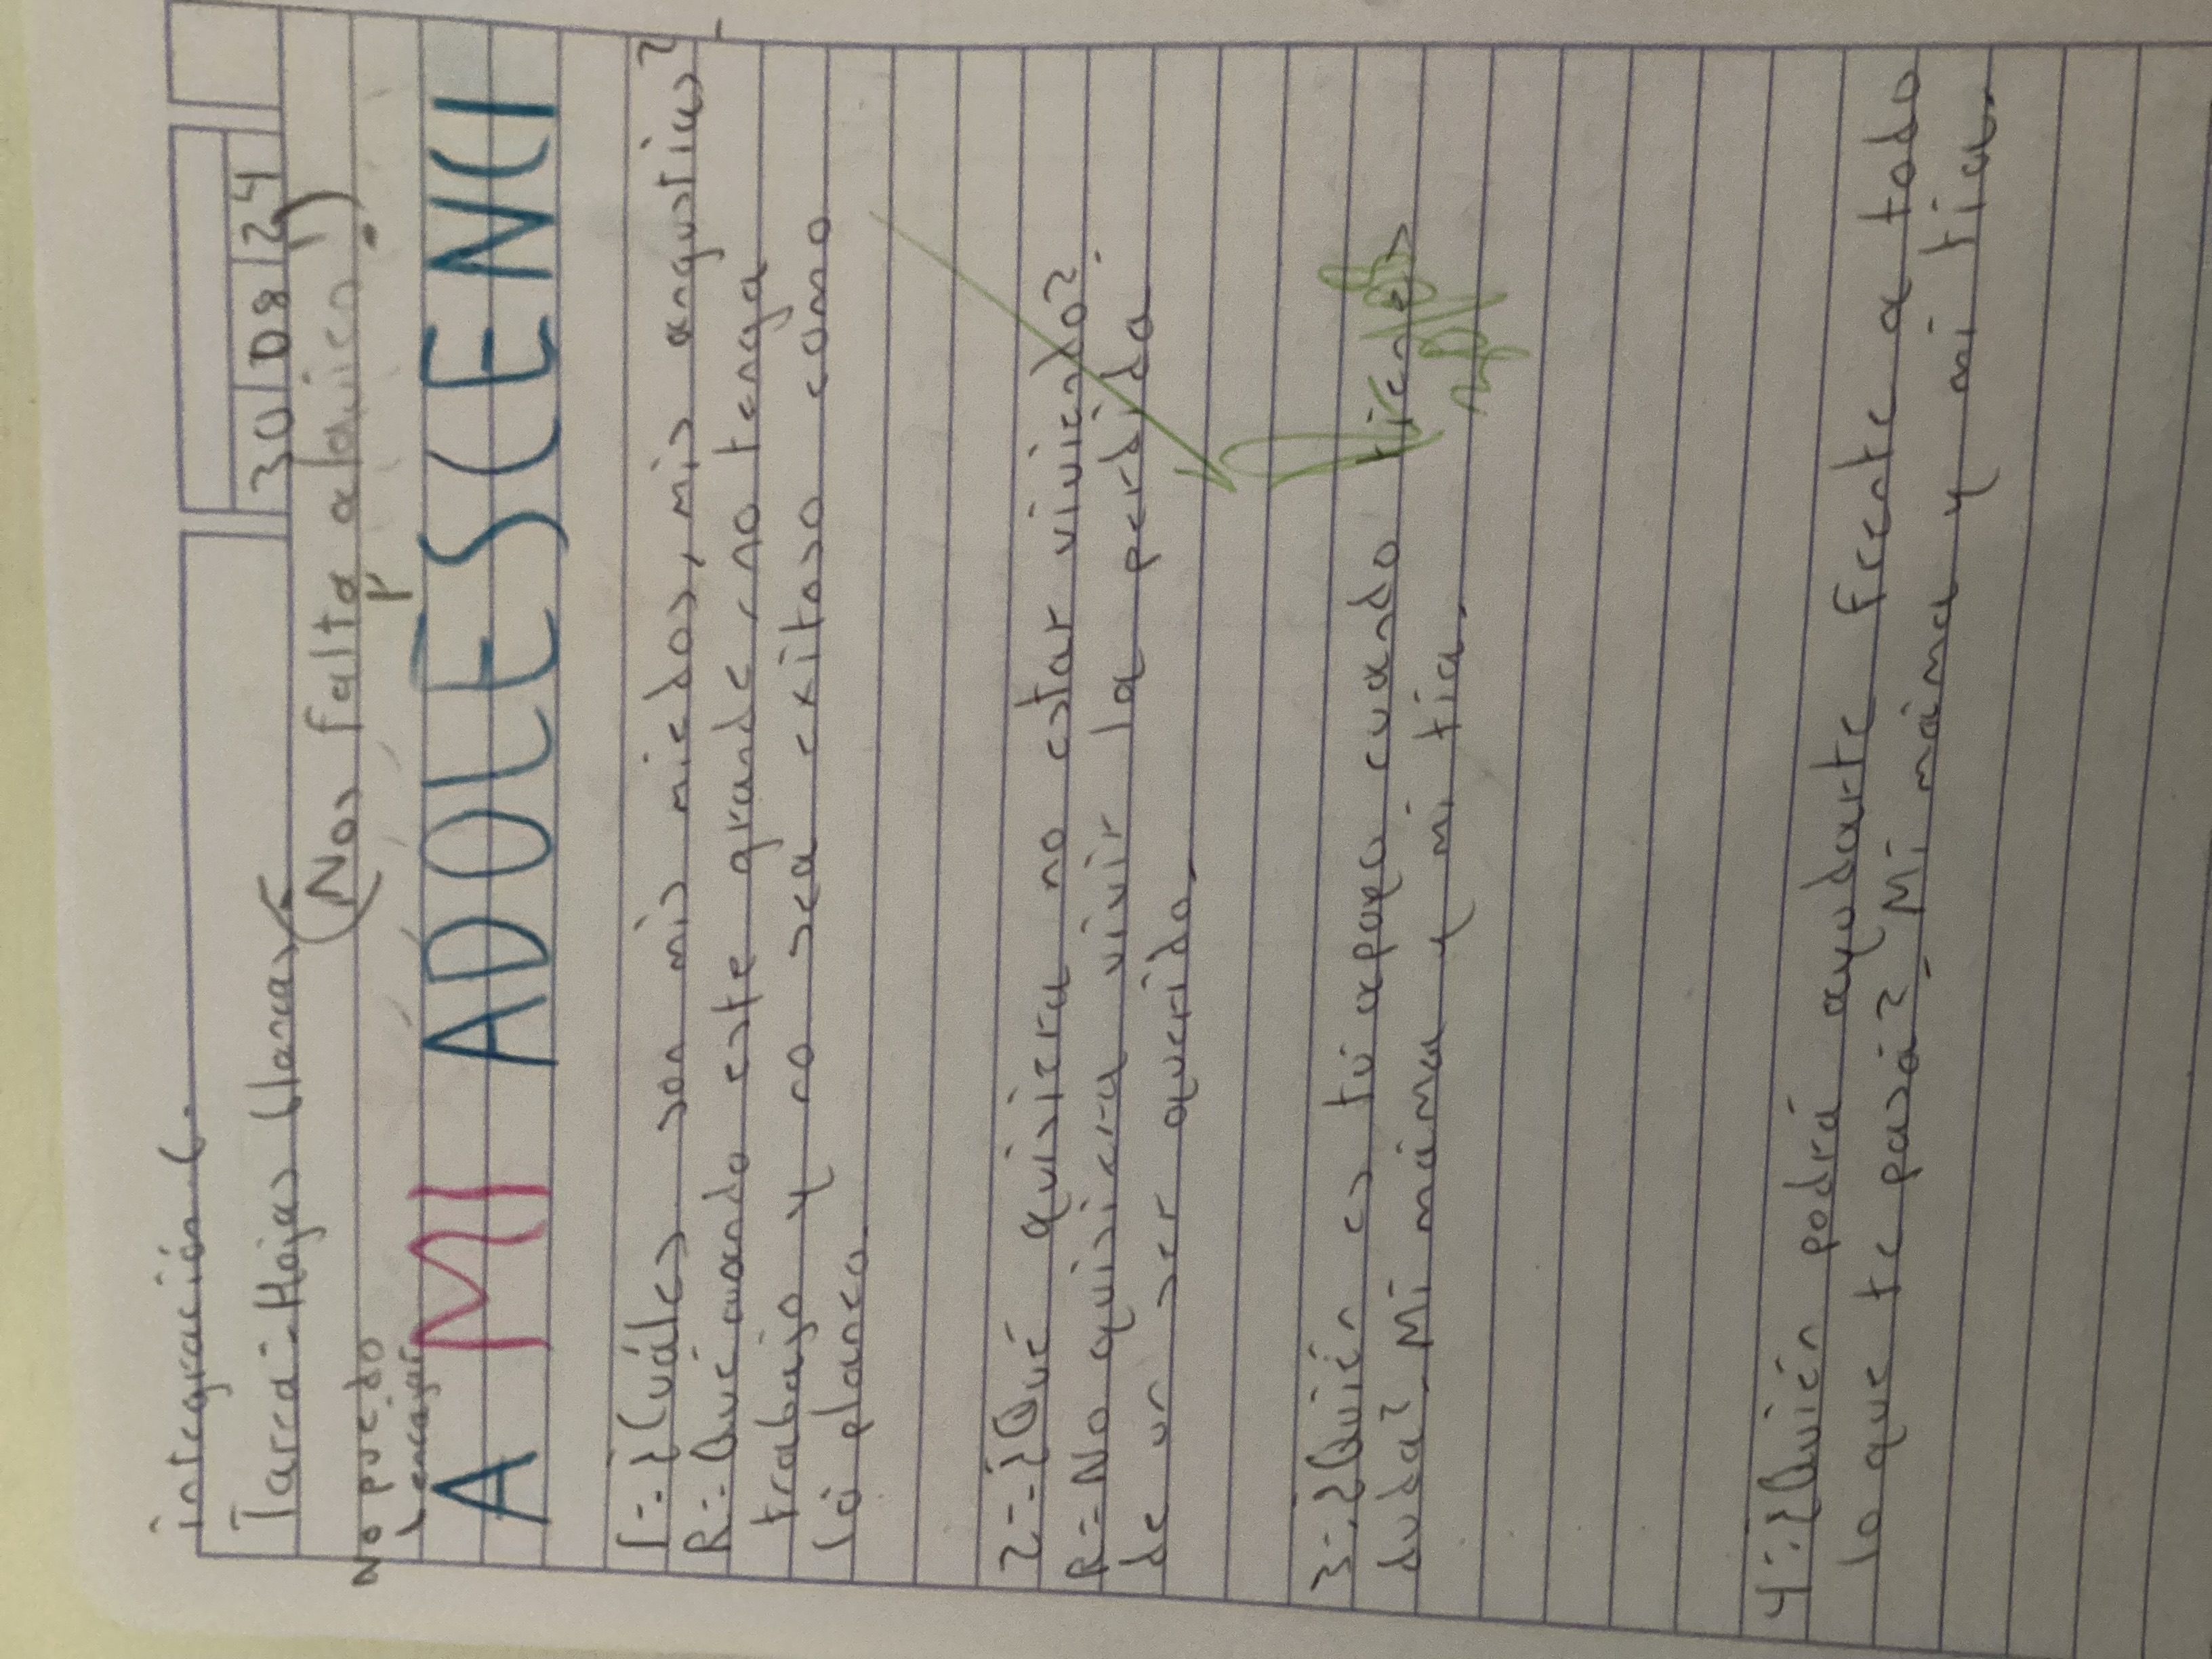 integración 6.
30/08/24
Tarea:-Hojas blancas
(Nos falto a la única)
No puedo
encajar
A MI ADOLESCENCI
1-:¿Cuáles son mis miedos, mis angustias?
R-: Que cuando este grande no tenga
trabajo y no sea exitoso como
lo planeo.
2-:¿Qué quisiera no estar viviendo?
R-: No quisiera vivir la perdida
de un ser querido.
3-:¿Quién es tú apoyo cuando tienes
duda? Mi máma y mi tia.
4-:¿Quién podrá ayudarte frente a todo
lo que te pasá? Mi máma y mi tia.